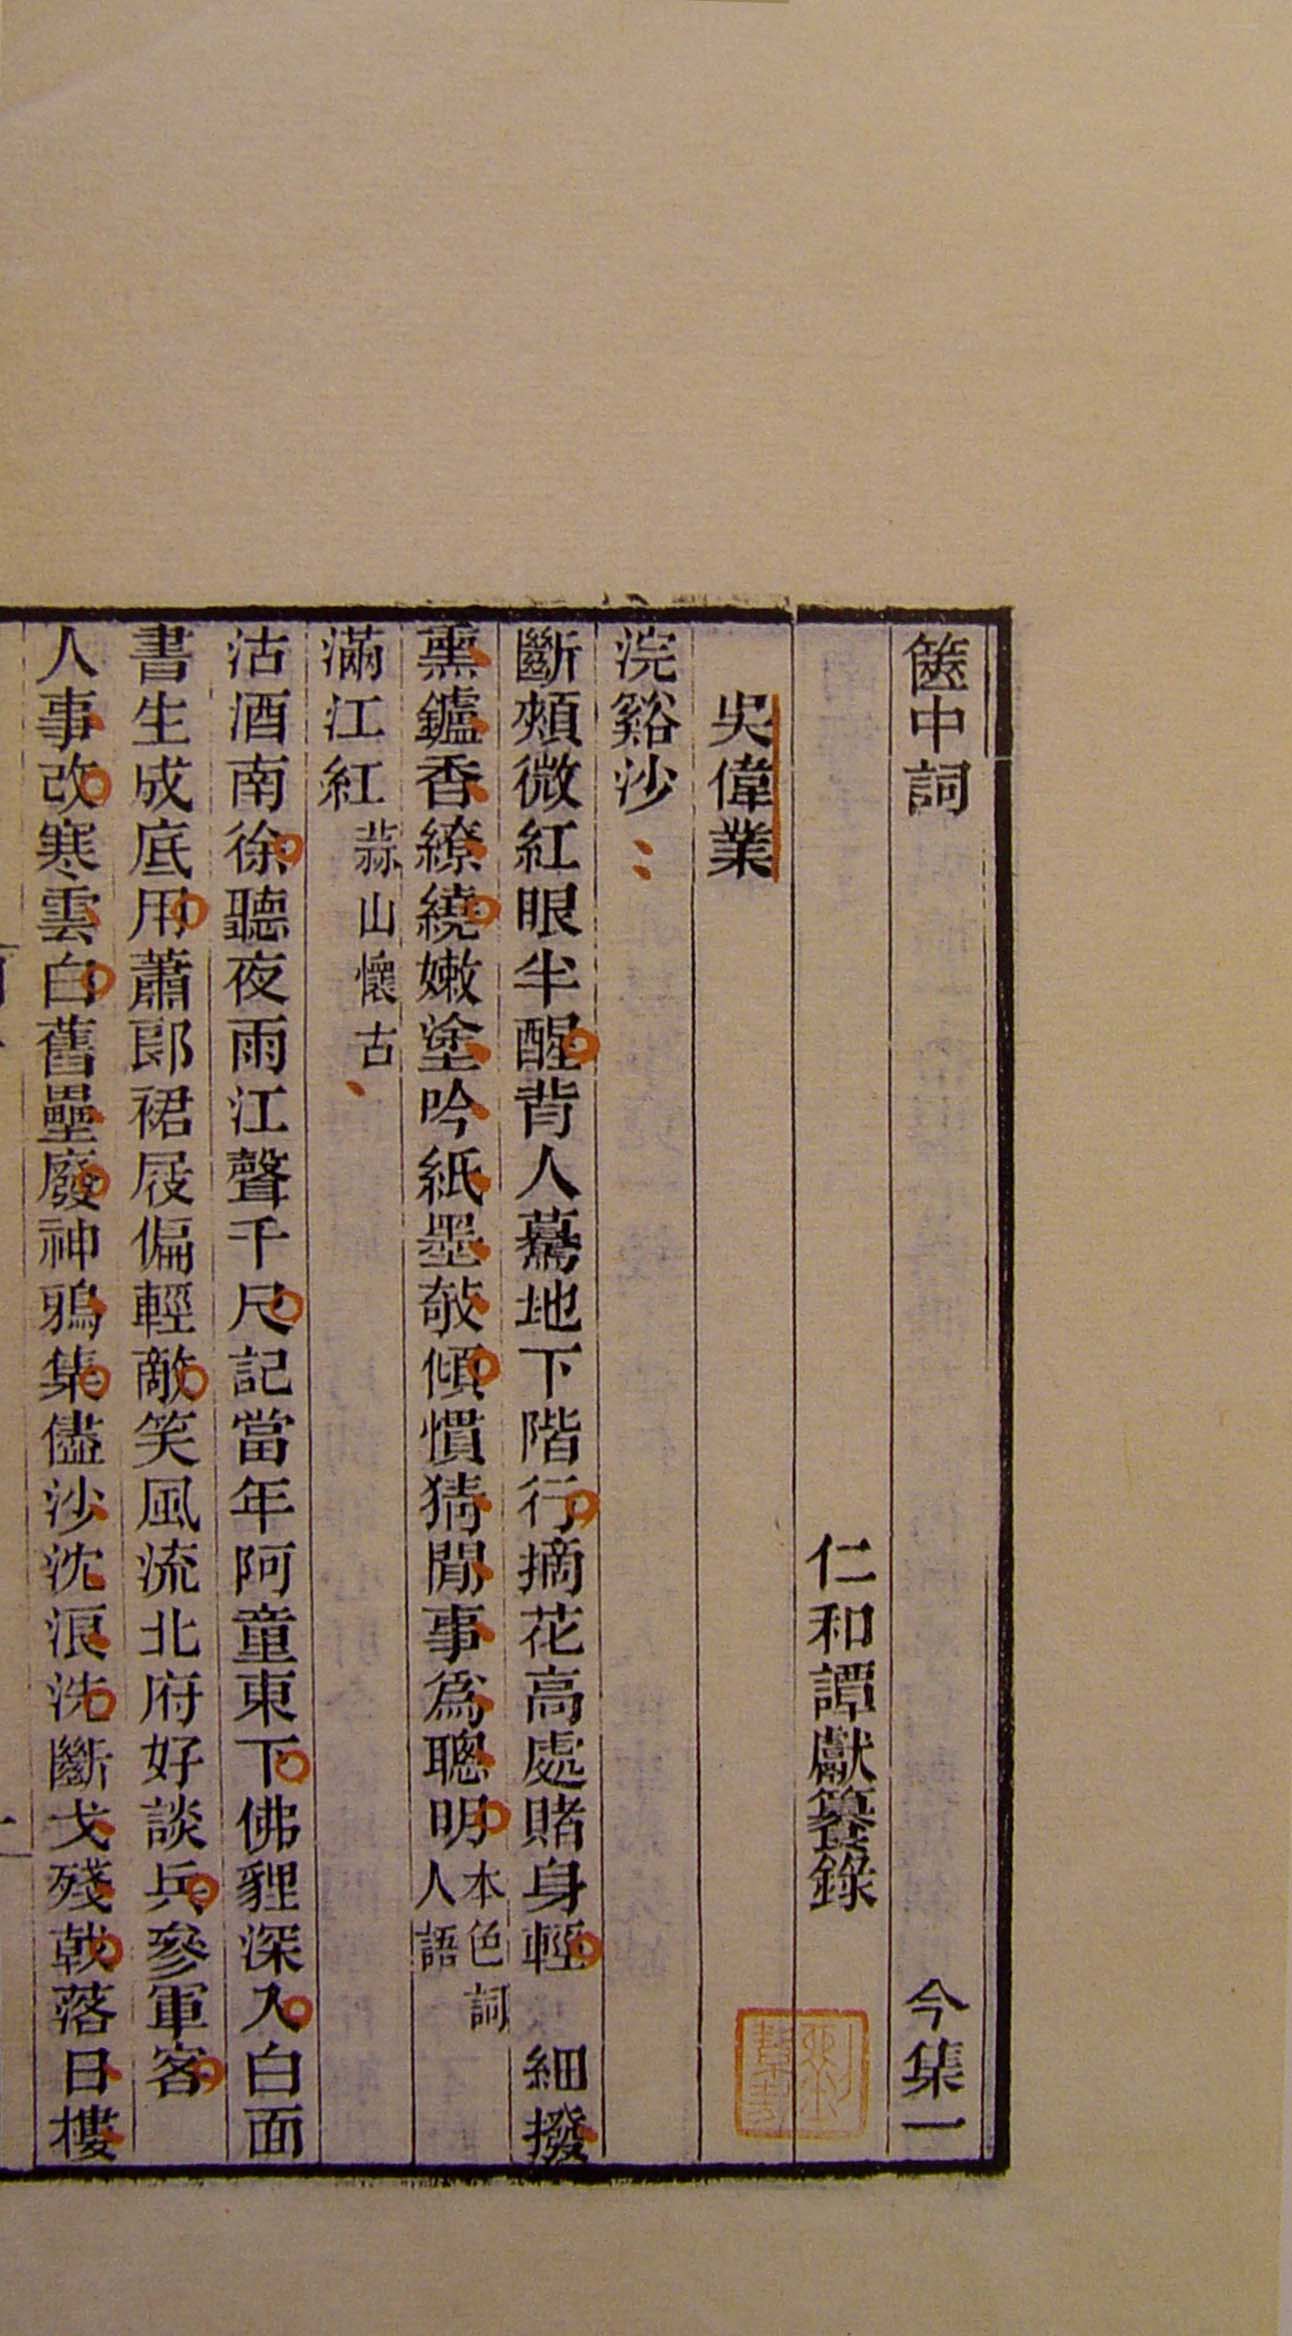 篋中詞 今集一
仁和譚獻纂錄
吳偉業
浣谿沙
斷頰微紅眼半醒背人驀地下階行摘花高處賭身輕 細撥
熏鑪香繚繞嫩塗吟紙墨攲傾慣猜閒事爲聰明 本色詞人語
滿江紅 蒜山懷古
沽酒南徐聽夜雨江聲千尺記當年阿童東下佛貍深入白面
書生成底用蕭郎裙屐偏輕敵笑風流北府好談兵參軍客
人事改寒雲白舊壘廢神鴉集儘沙沈浪洗斷戈殘戟落日樓